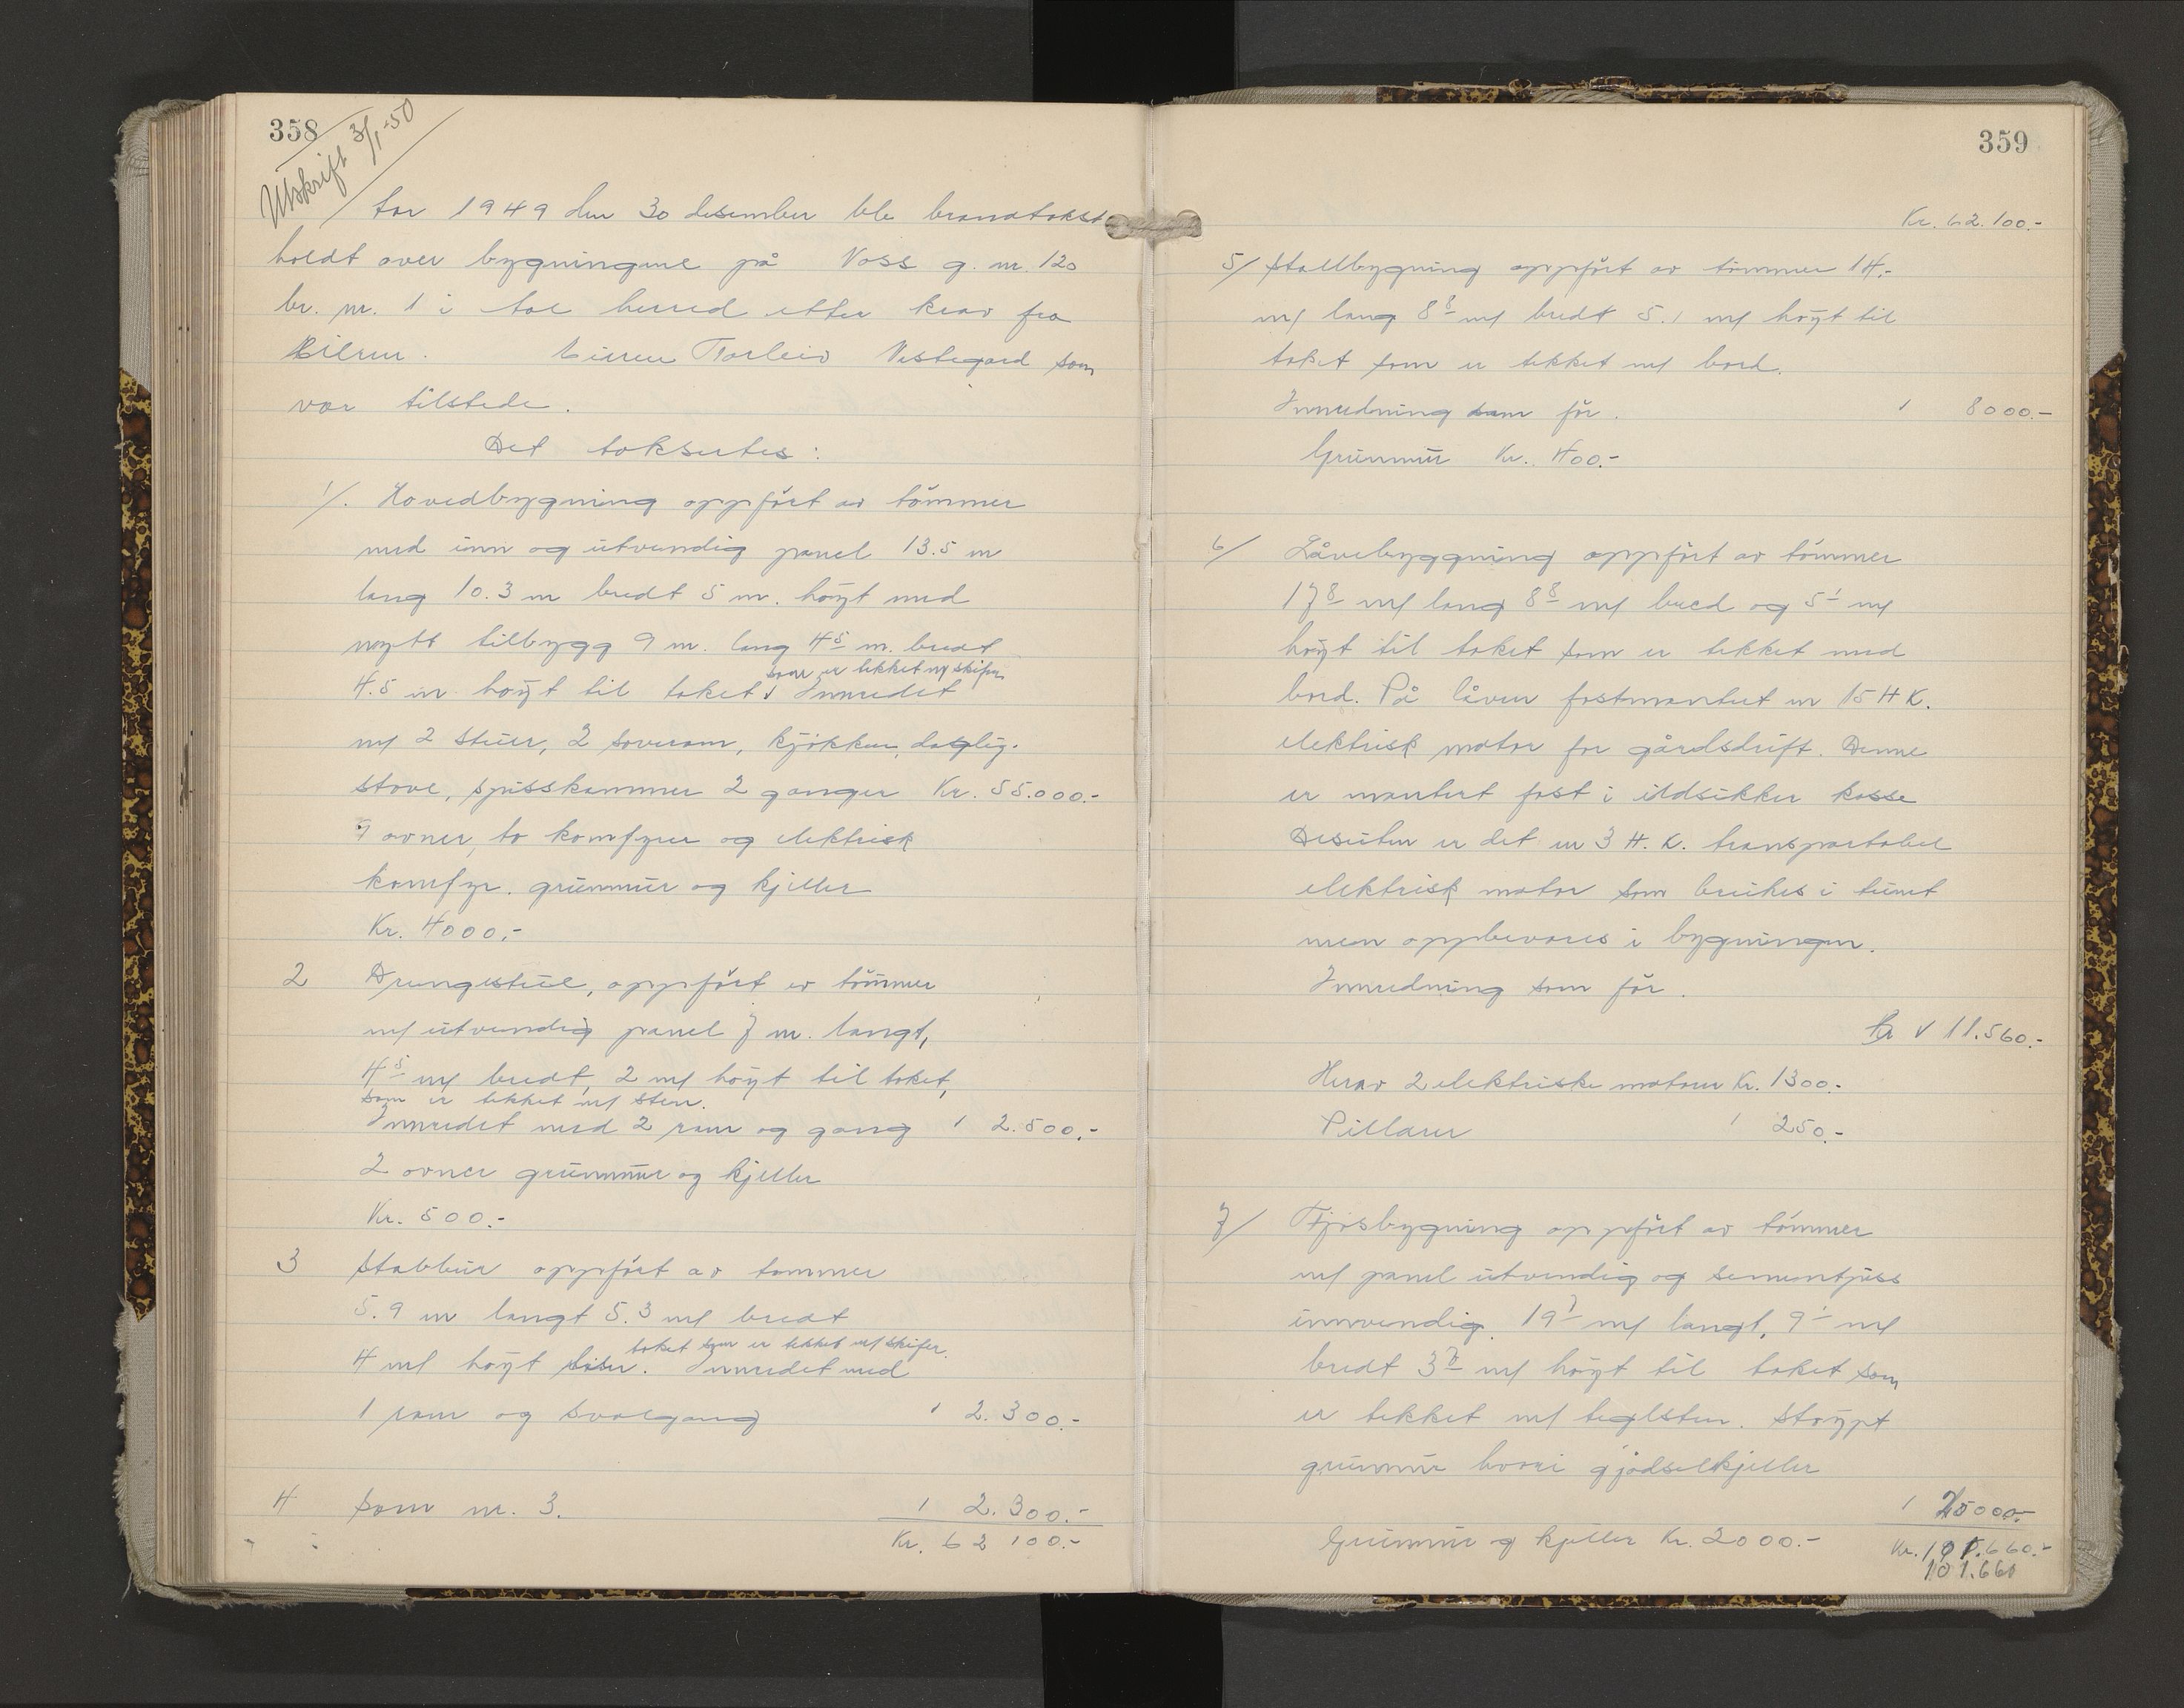 358
Utskrift 3/1-50
Aar 1949 den 30 desember ble brandtakst
holdt over bygningene på Voss g. nr. 120
br. nr. 1 i Aal herred etter krav fra
eieren Torleiv Vestegard som
var tilstede.
Det taksertes:
1/. Hovedbygning oppført av tömmer
med inn og utvendig panel 13.5 m
lang 10.3 m bredt 5 m. höyt med
nytt tilbygg 9 m. lang 4⁵ m. bredt
som er tekket m/ skifer
4.5 m höyt til taket v Innredet
m/ 2 stuer, 2 soverom, kjökken, daglig-
stove, spisskammer 2 ganger Kr. 55.000.-
9 ovner, to komfyrer og elektrisk
komfyr. grunmur og kjeller
Kr. 4000.-
2 Drengestue, oppfört av tömmer
m/ utvendig panel 7 m. langt,
4⁵ m/ bredt, 2 m/ höyt til taket,
som er tekket m/ sten.
Innredet med 2 rom og gang 1 2.500.-
2 ovner grunmur og kjeller
Kr. 500.-
3 Stabbur oppfört av tømmer
5.9 m langt 5.3 m/ bredt
taket som er tekket m/ skifer.
4 m/ höyt. Innredet med
1 rom og svalgang 1 2.300.-
4 Som nr. 3. 1 2.300.-
Kr. 62 100.-
359
Kr. 62.100.-
5/ Stallbygning oppfört av tömmer 14.-
m/ lang 8⁸ m/ bredt 5.1 m/ höyt til
taket som er tekket m/ bord.
Innredning som för. 1 8000.-
Grunmur Kr. 400.-
6/ Låvebyggning oppfört av tömmer
17⁸ m/ lang 8⁸ m/ bred og 5¹ m/
höyt til taket som er tekket med
bord. På låven fastmontert en 15 H K.
elektrisk motor for gårdsdrift. Denne
er montert fast i ildsikker kasse
Desuten er det en 3 H. K. transportabel
elektrisk motor som brukes i tunet
men oppbevares i bygningen.
Innredning som för.
Kr v 11.560.-
Herav 2 elektriske motorer Kr. 1300.-
Pillarer 1 250.-
7/ Fjösbygning oppfört av tömmer
m/ panel utvendig og sementpuss
innvendig. 19⁷ m/ langt, 9¹ m/
bredt 3⁷ m/ höyt til taket som
er tekket m/ teglsten. Stöypt
grunmur hvori gjödselkjeller
1 25000.-
Grunmur og kjeller Kr. 2000.- Kr. 101.660.-
101.660